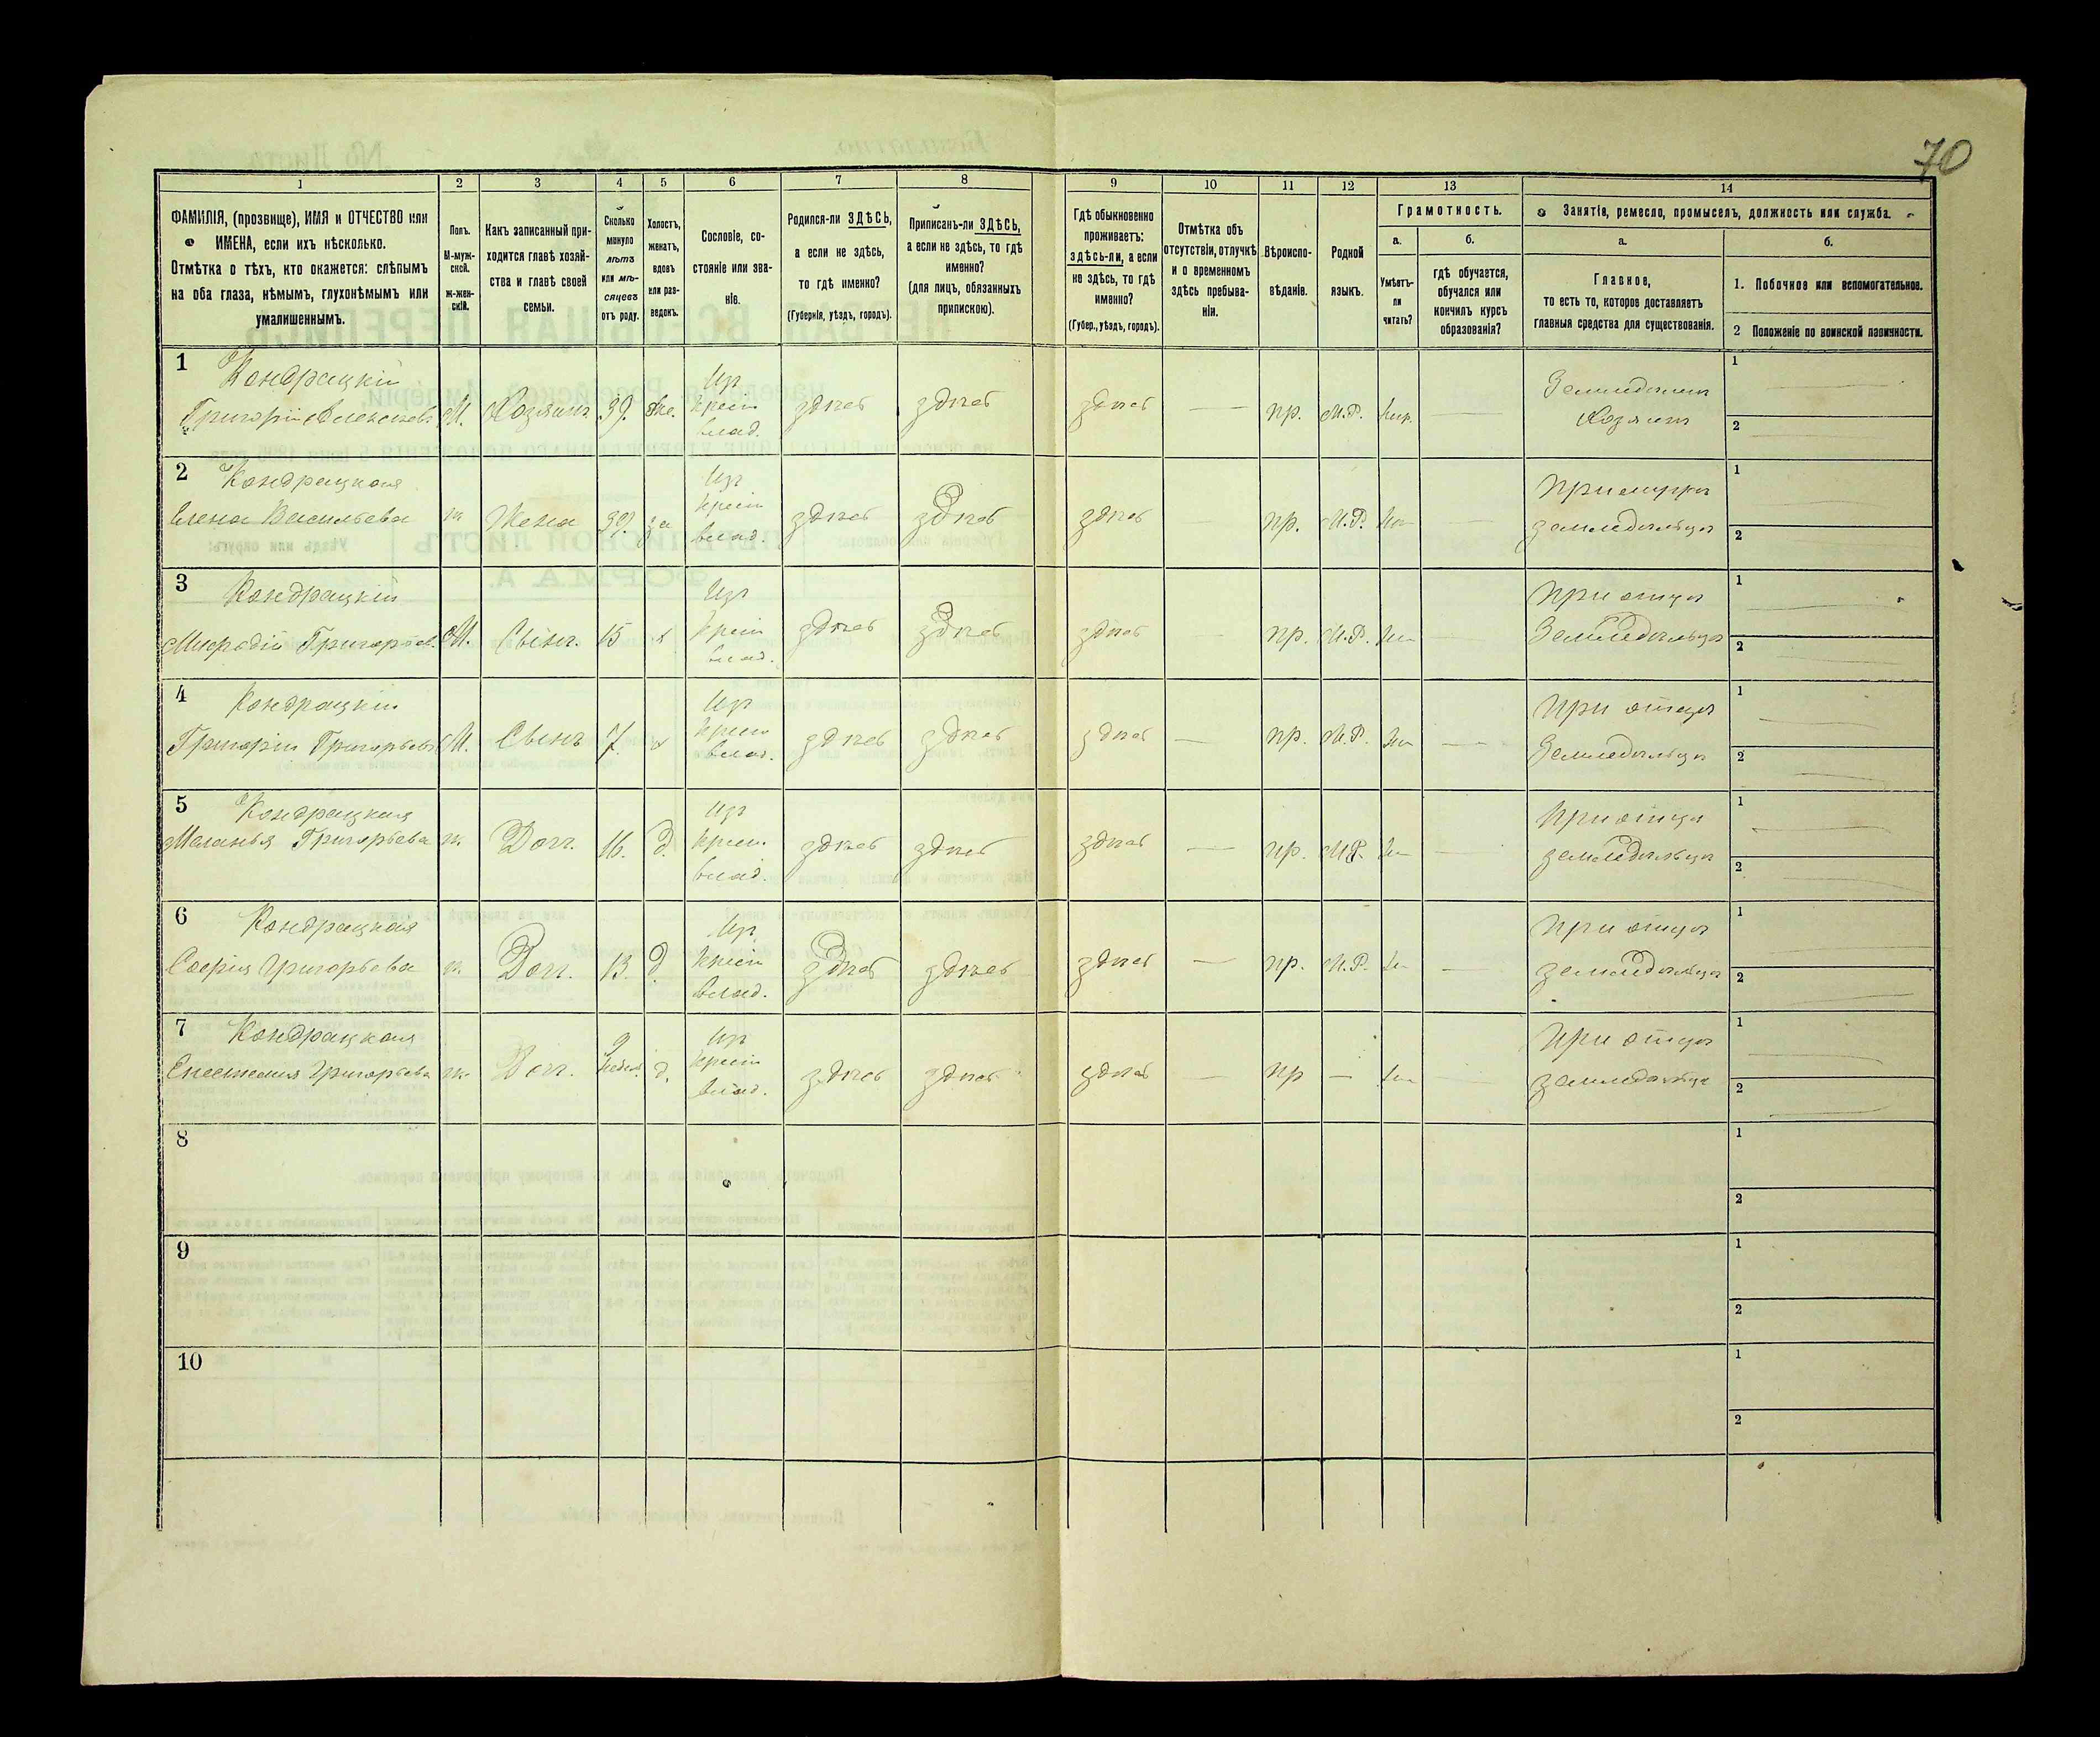 70
1 2 3 4 5 6 7 8 9 10 11 12 13 14
ФАМИЛІЯ, (прозвище), ИМЯ и ОТЧЕСТВО или
ИМЕНА, если ихъ нѣсколько.
Отмѣтка о тѣхъ, кто окажется: слѣпымъ
на оба глаза, нѣмымъ, глухонѣмымъ или
умалишеннымъ.
Полъ.
М-муж-
ской.
ж-жен-
скій.
Какъ записанный при-
ходится главѣ хозяй-
ства и главѣ своей
семьи.
Сколько
минуло
лѣтъ
или мѣ-
сяцевъ
отъ роду.
Холостъ,
женатъ,
вдовъ
или раз-
веденъ.
Сословіе, со-
стояніе или зва-
ніе.
Родился-ли ЗДѢСЬ,
а если не здѣсь,
то гдѣ именно?
(Губернія, уѣздъ, городъ).
Приписанъ-ли ЗДѢСЬ,
а если не здѣсь, то гдѣ
именно?
(для лицъ, обязанныхъ
припискою).
Гдѣ обыкновенно
проживаетъ:
здѣсь-ли, а если
не здѣсь, то гдѣ
именно?
(Губер., уѣздъ, городъ).
Отмѣтка объ
отсутствіи, отлучкѣ
и о временномъ
здѣсь пребыва-
ніи.
Вѣроиспо-
вѣданіе.
Родной
языкъ.
Грамотность.
а.
Умѣетъ-
ли
читать?
б.
гдѣ обучается,
обучался или
кончилъ курсъ
образованія?
Занятіе, ремесло, промыселъ, должность или служба.
а.
Главное,
то есть то, которое доставляетъ
главныя средства для существованія.
б.
1. Побочное или вспомогательное.
2 Положеніе по воинской повинности.
1 Кондрацкій
Григорій Алексѣевъ М. Хозяинъ 39. же. Изъ крест. влад. здѣсь здѣсь здѣсь — пр. М.Р. — Хозяинъ
1
2
2 Кондрацкая
Елена Васильева ж Жена 39. за Изъ крест. влад. здѣсь здѣсь здѣсь пр. М.Р. — При мужѣ земледѣльцѣ
1
2
3 Кондрацкій
Григорьев. М. Сынъ. 15 х Изъ крест. влад. здѣсь здѣсь здѣсь — пр. М.Р. — При отцѣ Земледѣльцѣ
1
2
4 Кондрацкій
Григорій Григорьевъ М. Сынъ 7. х Изъ крест. влад. здѣсь здѣсь здѣсь — пр. М.Р. — При отцѣ Земледѣльцѣ
1
2
5 Кондрацкая
Маланья Григорьева ж. Доч. 16. д. Изъ крест. влад. здѣсь здѣсь здѣсь — пр. М.Р. — При отцѣ земледѣльцѣ
1
2
6 Кондрацкая
Софія Григорьева ж. Доч. 13. д. Изъ крест. влад. здѣсь здѣсь здѣсь — пр. М.Р. — При отцѣ земледѣльцѣ
1
2
7 Кондрацкая
Григорьева ж. Доч. 9 недѣл. д. Изъ крест. влад. здѣсь здѣсь здѣсь — пр — — При отцѣ земледѣльцѣ
1
2
8
1
2
9
1
2
10
1
2